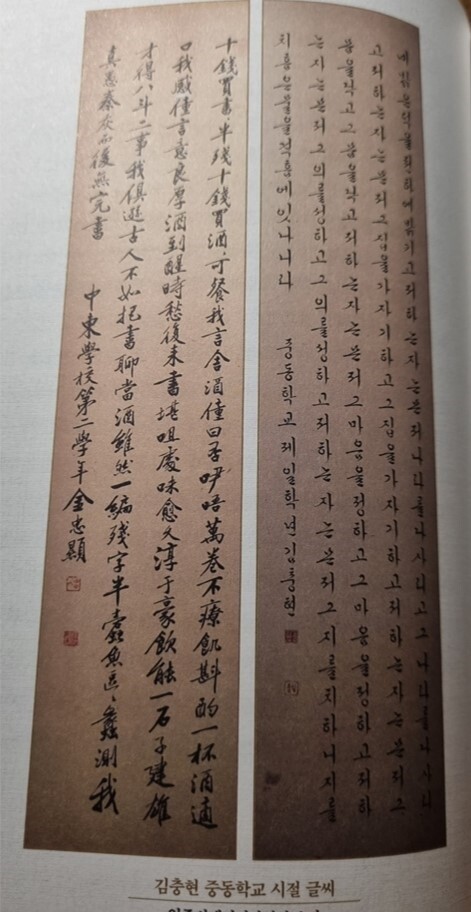 녜밝은덕을텬하에밝키고져하는자는몬져나라를다사리고그나라를다사리
고져하는자는몬져그집을가자기하고그집을가자기하고져하는자는몬져그
몸을닥고그몸을닥고져하는자는몬져그마음을정하고그마음을정하고져하
는자는몬져그의를성하고그의를성하고져하는자는몬져그지를치하나니지를
치홈은물을격홈에잇나니라 중동학교제일학년김충현
十錢買書、半残十錢買酒、可餐我言舍酒僮曰否咿唔萬卷不療飢斟酌一杯酒適
口我感僮言意良厚酒到醒時愁復来書堪咀處味愈久淳于豪飲能一石子建雄
才得八斗二事我俱遜古人不如把書聊當酒雖然一編殘字半蠹魚區、蠡測我
真愚秦灰而後無完書 中東學校第二學年金忠顯
김충현 중동학교 시절 글씨